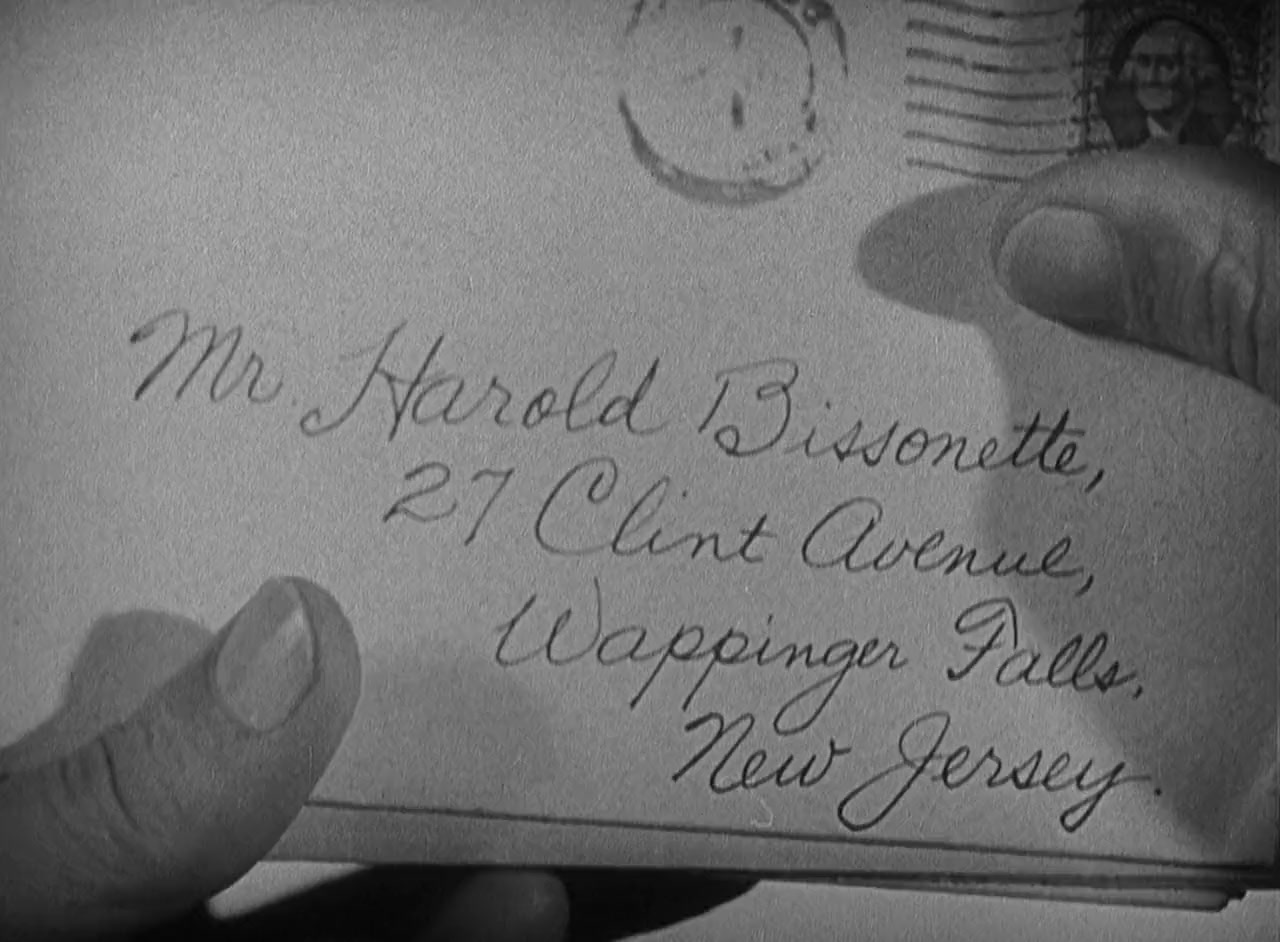 Mr. Harold Bissonette,
27 Clint Avenue,
Wappinger Falls.
New Jersey.